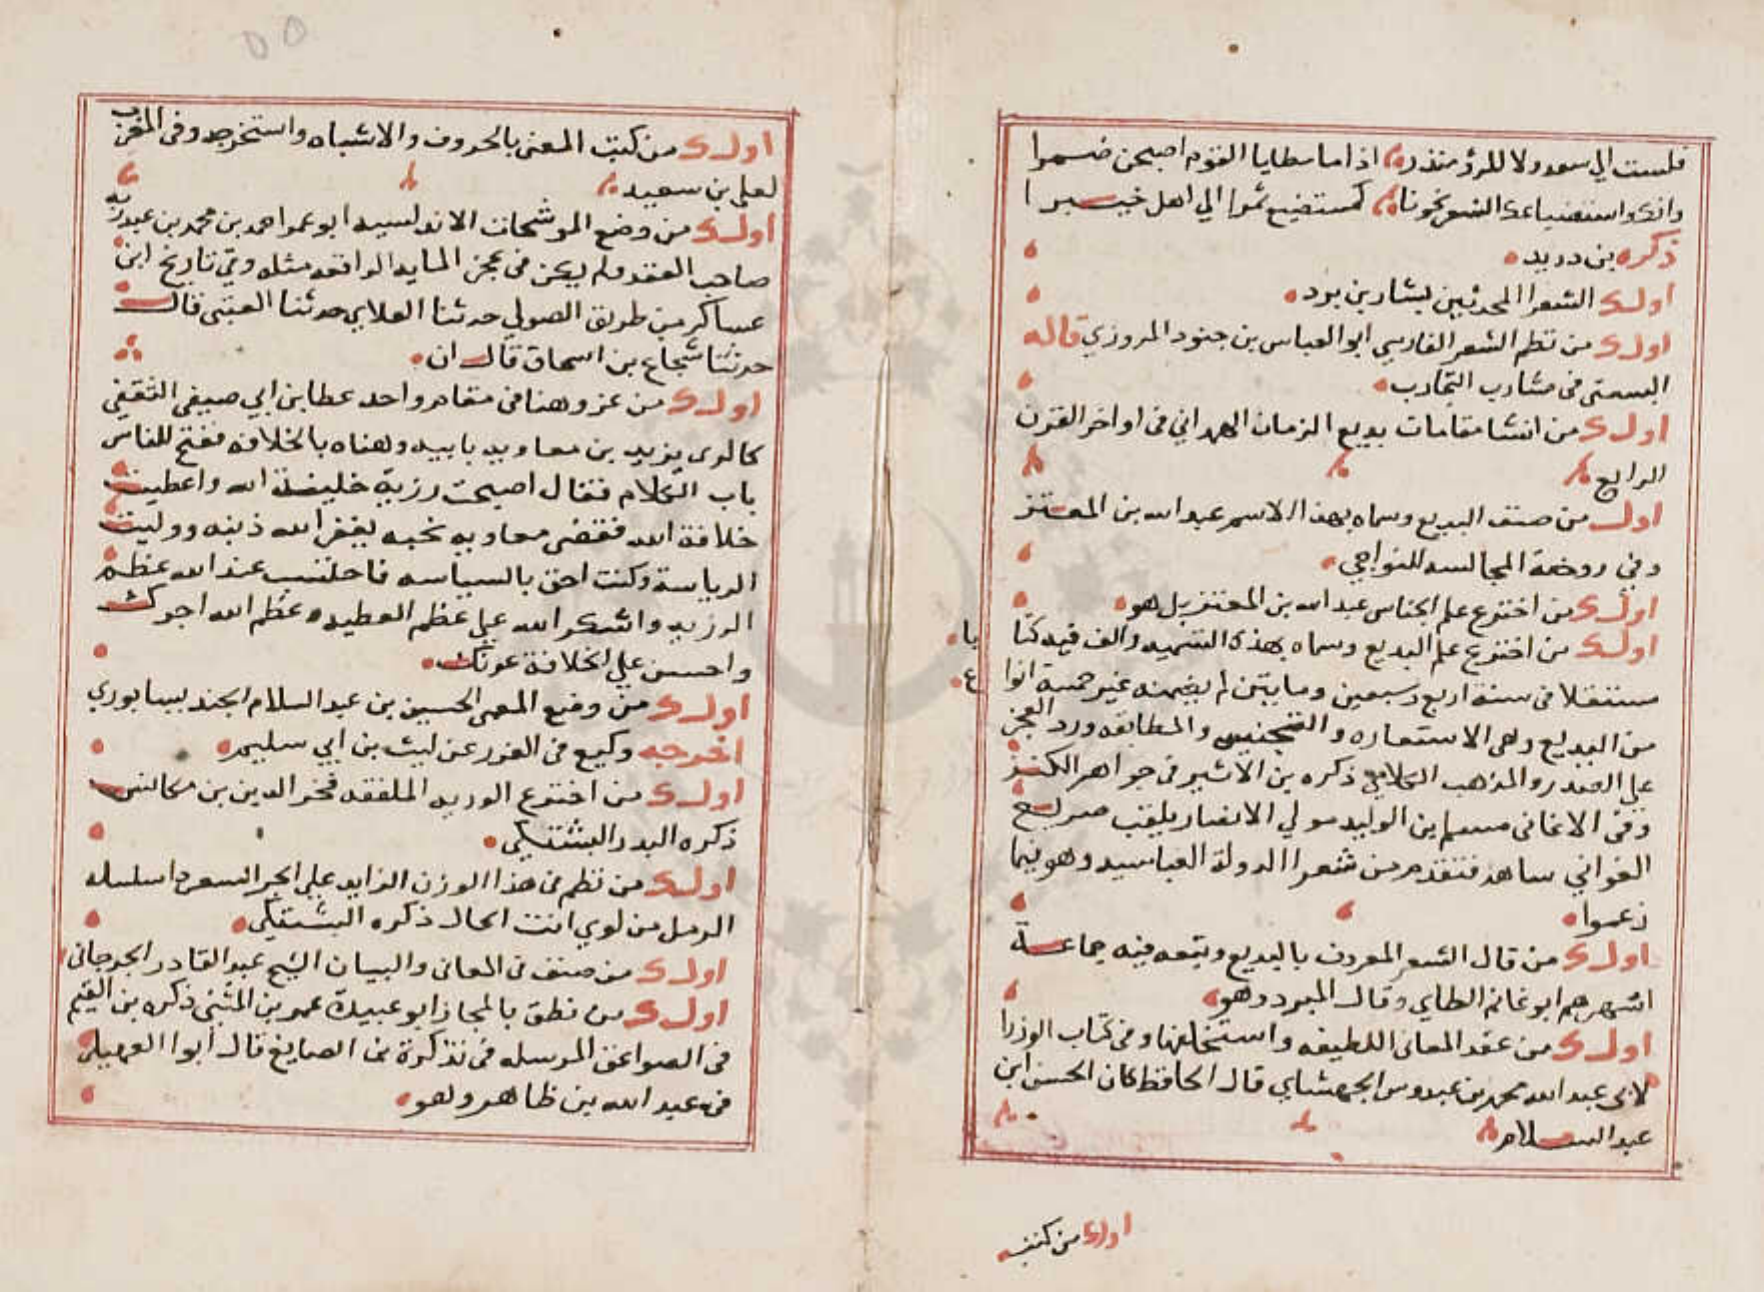 فلست الي سعد ولا للمرؤ منذر اذا ما مطايا القوم اصبحن ضمرا
وانك واستبضاعك الشعر نحونا كمستبضع تمرا الي اهل خيبرا
ذكره بن دريد
اول الشعرا المحدثين بشار بن برد
اول من نظم الشعر الفارسي ابو العباس بن جنود المروزي قاله
البستى فى مشارب التجارب
اول من انشا مقامات بديع الزمان الهمداني فى اواخر القرن
الرابع
اول من صنف البديع وسماه بهذا الاسم عبد الله بن المعتز
وفي روضة المجالسه للنواجي
اول من اخترع علم الجناس عبد الله بن المعتز بل هو
اول من اخترع علم البديع وسماه بهذه التسميه والف فيه كتا با
مستقلا فى سنة اربع وسبعين ومايتين لم يضمنه غير خمسة انوا ع
من البديع وهى الاستعاره والتجنيس والمطابقه ورد العجز
علي الصدر والمذهب الكلامي ذكره بن الاثير فى جواهر الكنز
وفى الاغانى مسلم بن الوليد مولي الانصار يلقب صريع
الغواني شاهد متقدم من شعرا الدولة العباسيه وهو فيما
زعموا
اول من قال الشعر المعروف بالبديع وتبعه فيه جماعة
اشهرهم ابو غانم الطاي وقال المبرد وهو
اول من عقد المعانى اللطيفه واستخلصها وفى كتاب الوزرا
لابى عبد الله محمد بن عبدوس الجهشياي قال الحافظ كان الحسن ابن
عبد السلام
اول من كتب
اول من كتب المعنى بالحروف والاشباه واستخرجه وفى المغرب
لعلي بن سعيد
اول من وضع الموشحات الاندلسيه ابو عمر احمد بن محمد بن عبد ربه
صاحب العقد ولم يكن فى عجز المايه الرابعه مثله وفي تاريخ ابن
عساكر من طريق الصولي حدثنا الغلابي حدثنا العتبى قال
حدثنا شجاع بن اسحاق قال ان
اول من عز وهنا فى مقام واحد عطا بن ابي صيفي الثقفي
كالوى يزيد بن معاويه بابيه وهناه بالخلافه ففتح للناس
باب الكلام فقال اصبحت رزية خليفة الله واعطيت
خلافة الله فقضى معاويه نحبه يغفر الله ذنبه ووليت
الرياسة وكنت احق بالسياسه فاحتسب عند الله عظم
الرزيه واشكر الله علي عظم العطيه عظم الله اجرك
واحسن علي الخلافة عونك
اول من وضع المعمى الحسين بن عبد السلام الجنديسابوري
اخرجه وكيع فى الغرر عن ليث بن ابي سليم
اول من اخترع الوريه الملفقه فخر الدين بن مكانس
ذكره البدر البشتكي
اول من نظم فى هذا الوزن الزايد علي البحر سلسله
الرمل من لوي انت الحال ذكره البشتكي
اول من صنف فى المعانى والبيان الشيخ عبد القادر الجرجانى
اول من نطق بالمجاز ابو عبيدة عمر بن المثنى ذكره بن القيم
فى الصواعق المرسله فى تذكرة بن الصايغ قال ابوا العميل
فى عبد الله بن ظاهر وهو